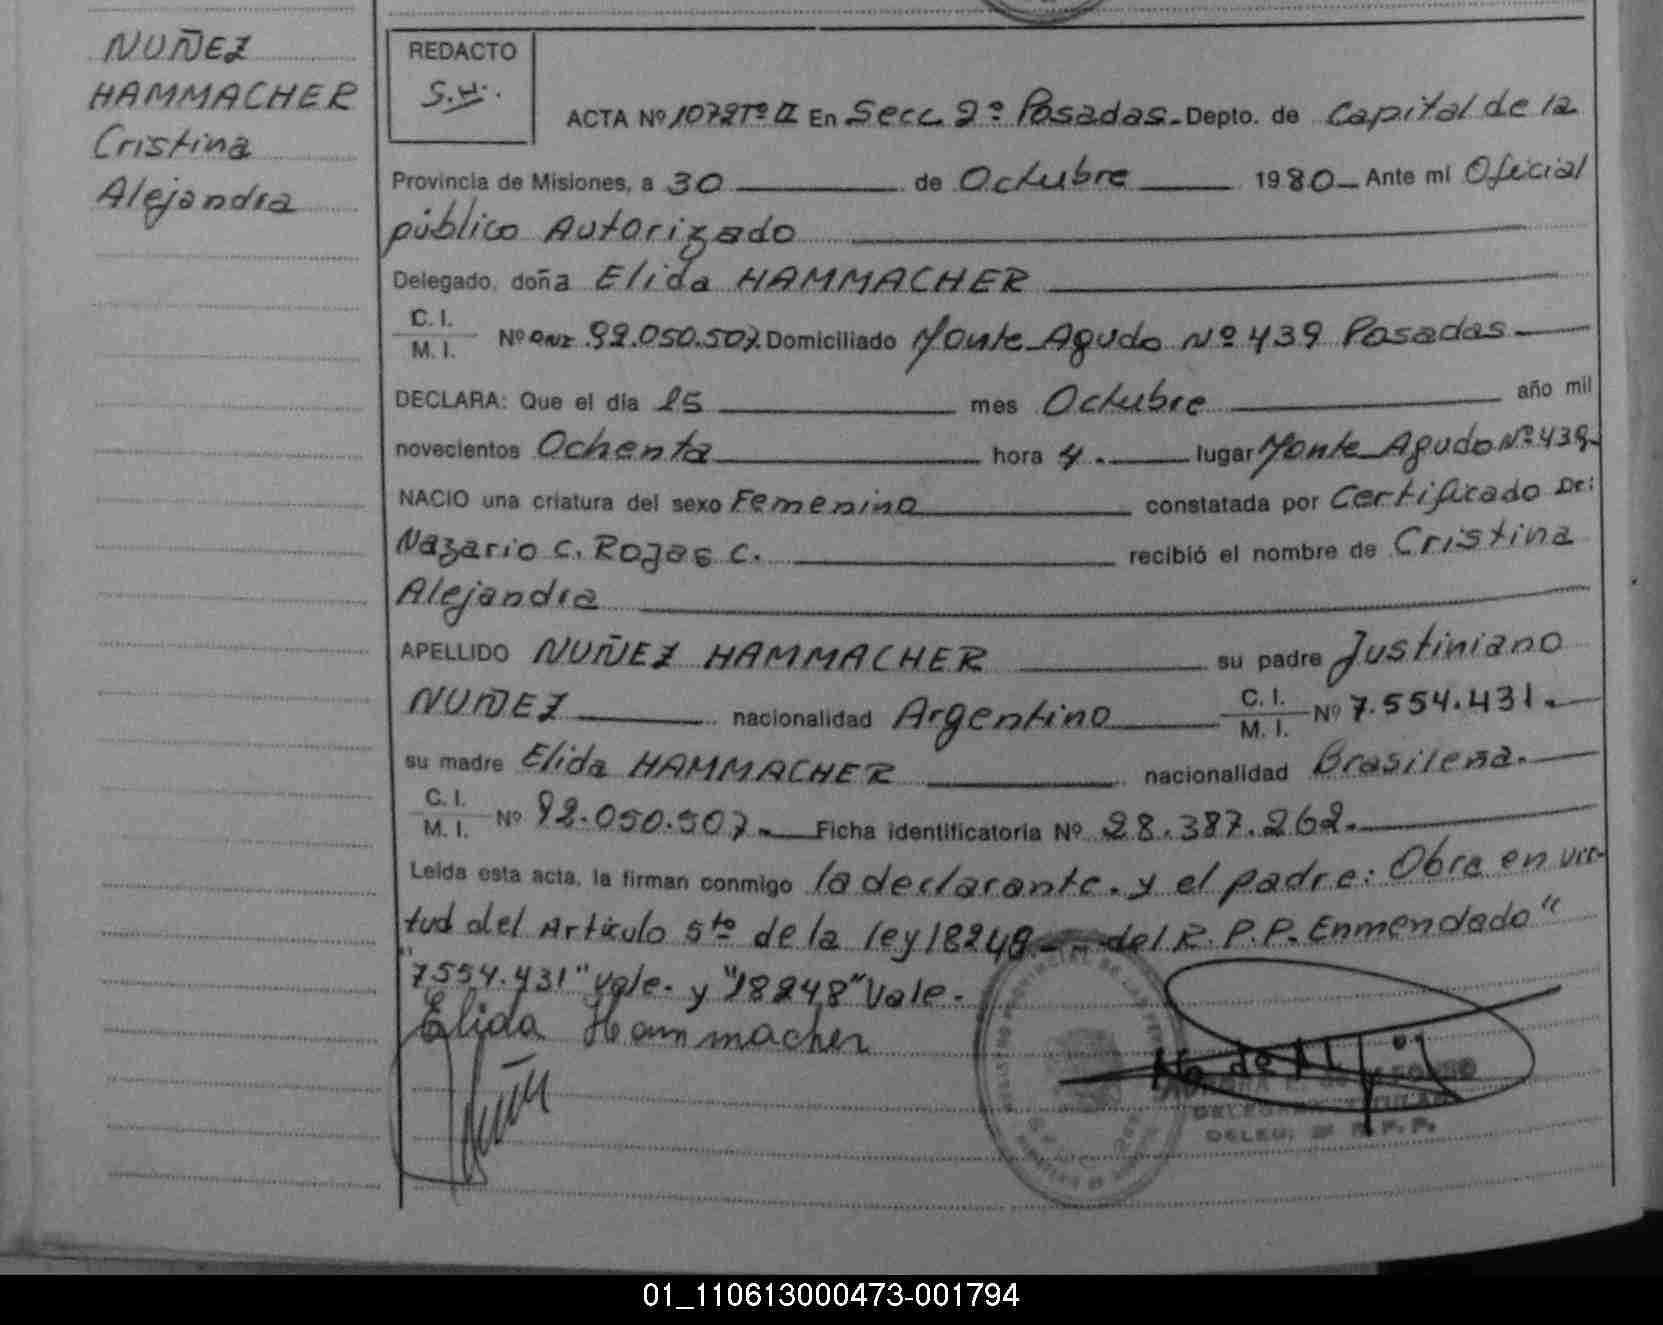 NUÑEZ
HAMMACHER
Cristina
Alejandra
REDACTO
S.H.
ACTA Nº 1072 Tº II En Secc. 2º Posadas. Depto. de Capital de la
Provincia de Misiones, a 30 de Octubre 1980 Ante mi Oficial
público Autorizado
Delegado, doña Elida HAMMACHER
C. I.
M. I. Nº DNI 92.050.507 Domiciliado Monte Agudo Nº 439 Posadas
DECLARA: Que el día 15 mes Octubre año mil
novecientos Ochenta hora 4. lugar Monte Agudo Nº 439
NACIO una criatura del sexo Femenino constatada por Certificado De:
Nazario C. Rojas C. recibió el nombre de Cristina
Alejandra
APELLIDO NUÑEZ HAMMACHER su padre Justiniano
NUÑEZ nacionalidad Argentino C. I.
M. I. Nº 7.554.431.
su madre Elida HAMMACHER nacionalidad Brasileña.
C. I.
M. I. Nº 92.050.507. Ficha identificatoria Nº 28.387.262.
Leida esta acta, la firman conmigo la declarante. y el padre: Obra en vir-
tud del Artículo 5to de la ley 18248.- del R. P. P. Enmendado"
"7554.431" vale. y "18248" Vale.
Elida Hammacher
DELEGADA TITULAR
DELEG. 2ª R. P. P.
01_110613000473-001794